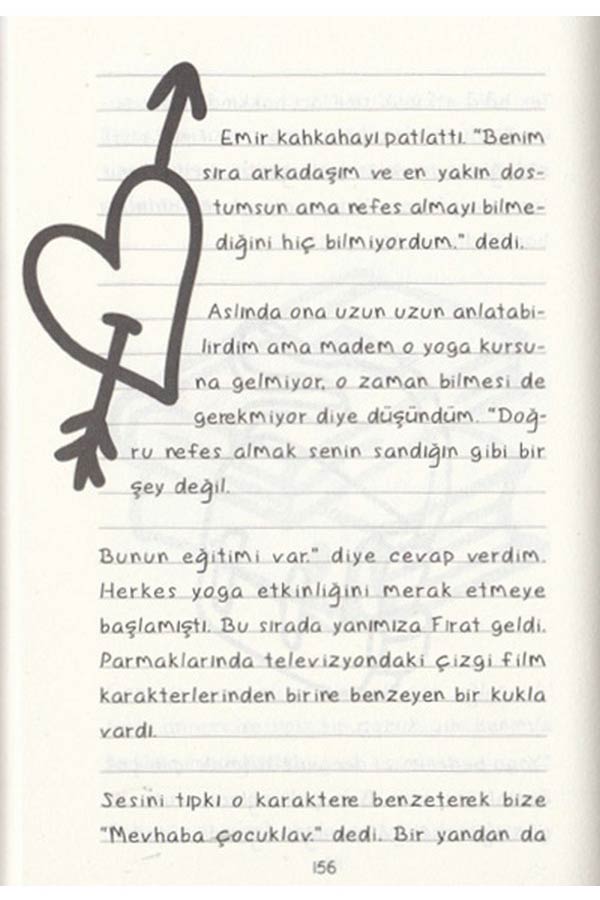 Emir kahkahayı patlattı. "Benim
sıra arkadaşım ve en yakın dos-
tumsun ama nefes almayı bilme-
diğini hiç bilmiyordum." dedi.
Aslında ona uzun uzun anlatabi-
lirdim ama madem o yoga kursu-
na gelmiyor, o zaman bilmesi de
gerekmiyor diye düşündüm. "Doğ-
ru nefes almak senin sandığın gibi bir
şey değil.
Bunun eğitimi var." diye cevap verdim.
Herkes yoga etkinliğini merak etmeye
başlamıştı. Bu sırada yanımıza Fırat geldi.
Parmaklarında televizyondaki çizgi film
karakterlerinden birine benzeyen bir kukla
vardı.
Sesini tıpkı o karaktere benzeterek bize
"Mevhaba çocuklav." dedi. Bir yandan da
156